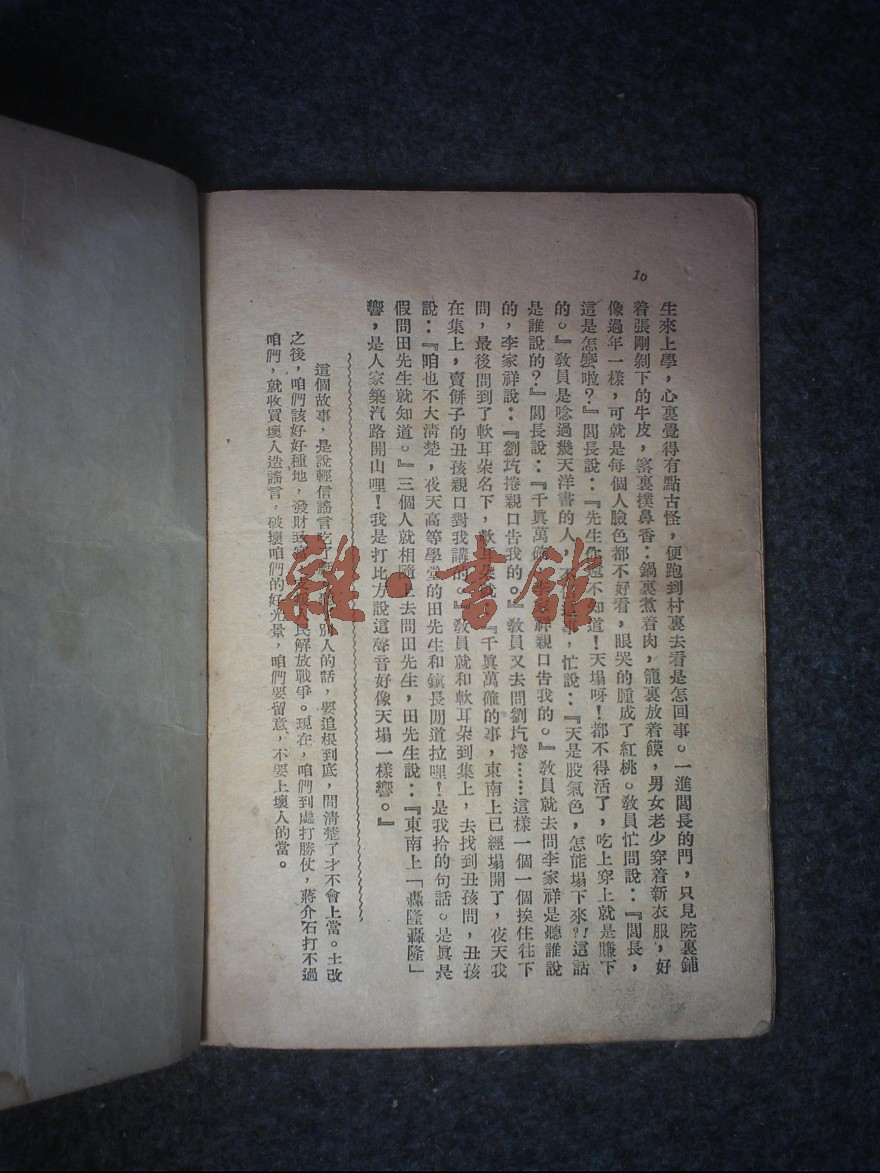 10
生來上學，心裏覺得有點古怪，便跑到村裏去看是怎回事。一進閭長的門，只見院裏鋪
着張剛剝下的牛皮，窰裏撲鼻香：鍋裏煮着肉，籠裏放着饃，男女老少穿着新衣服，好
像過年一樣，可就是每個人臉色都不好看，眼哭的腫成了紅桃。敎員忙問說：『閭長，
這是怎麽啦？』閭長說：『先生你還不知道！天塌呀！都不得活了，吃上穿上就是賺下
的。』敎員是唸過幾天洋書的人，不，忙說：『天是股氣色，怎能塌下來？！這話
是誰說的？』閭長說：『千眞萬確，祥親口告我的。』敎員就去問李家祥是聽誰說
的，李家祥說：『劉圪捲親口告我的。』敎員又去問劉圪捲……這樣一個一個挨住往下
問，最後問到了軟耳朶名下，軟耳朶說：『千眞萬確的事，東南上已經塌開了，夜天我
在集上，賣餅子的丑孩親口對我講的。』敎員就和軟耳朶到集上，去找到丑孩問，丑孩
說：『咱也不大淸楚，夜天高等學堂的田先生和鎭長閒道拉哩！是我拾的句話。是眞是
假問田先生就知道。』三個人就相隨上去問田先生，田先生說：『東南上「轟隆轟隆」
響，是人家築汽路開山哩！我是打比方說這聲音好像天塌一樣響。』
這個故事，是說輕信謠言吃了，別人的話，要追根到底，問淸楚了才不會上當。土改
之後，咱們該好好種地，發財致富，民解放戰爭。現在，咱們到處打勝仗，蔣介石打不過
咱們，就收買壞人造謠言，破壞咱們的好光景，咱們要留意，不要上壞人的當。
雜·書館